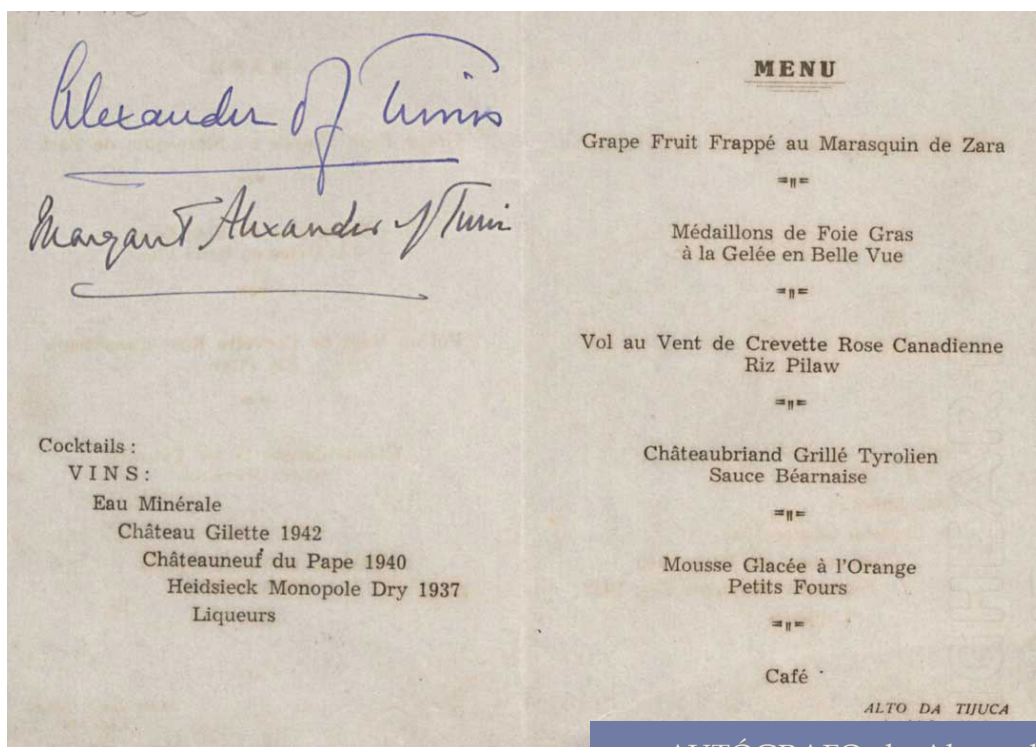 Alexander of Tunis
Margaret Alexander of Tunis
Cocktails :
VINS :
Eau Minérale
Château Gilette 1942
Châteauneuf du Pape 1940
Heidsieck Monopole Dry 1937
Liqueurs
MENU
Grape Fruit Frappé au Marasquin de Zara
Médaillons de Foie Gras
à la Gelée en Belle Vue
Vol au Vent de Crevette Rose Canadienne
Riz Pilaw
Châteaubriand Grillé Tyrolien
Sauce Béarnaise
Mousse Glacée à l'Orange
Petits Fours
Café
ALTO DA TIJUCA
AUTÓGRAFO de